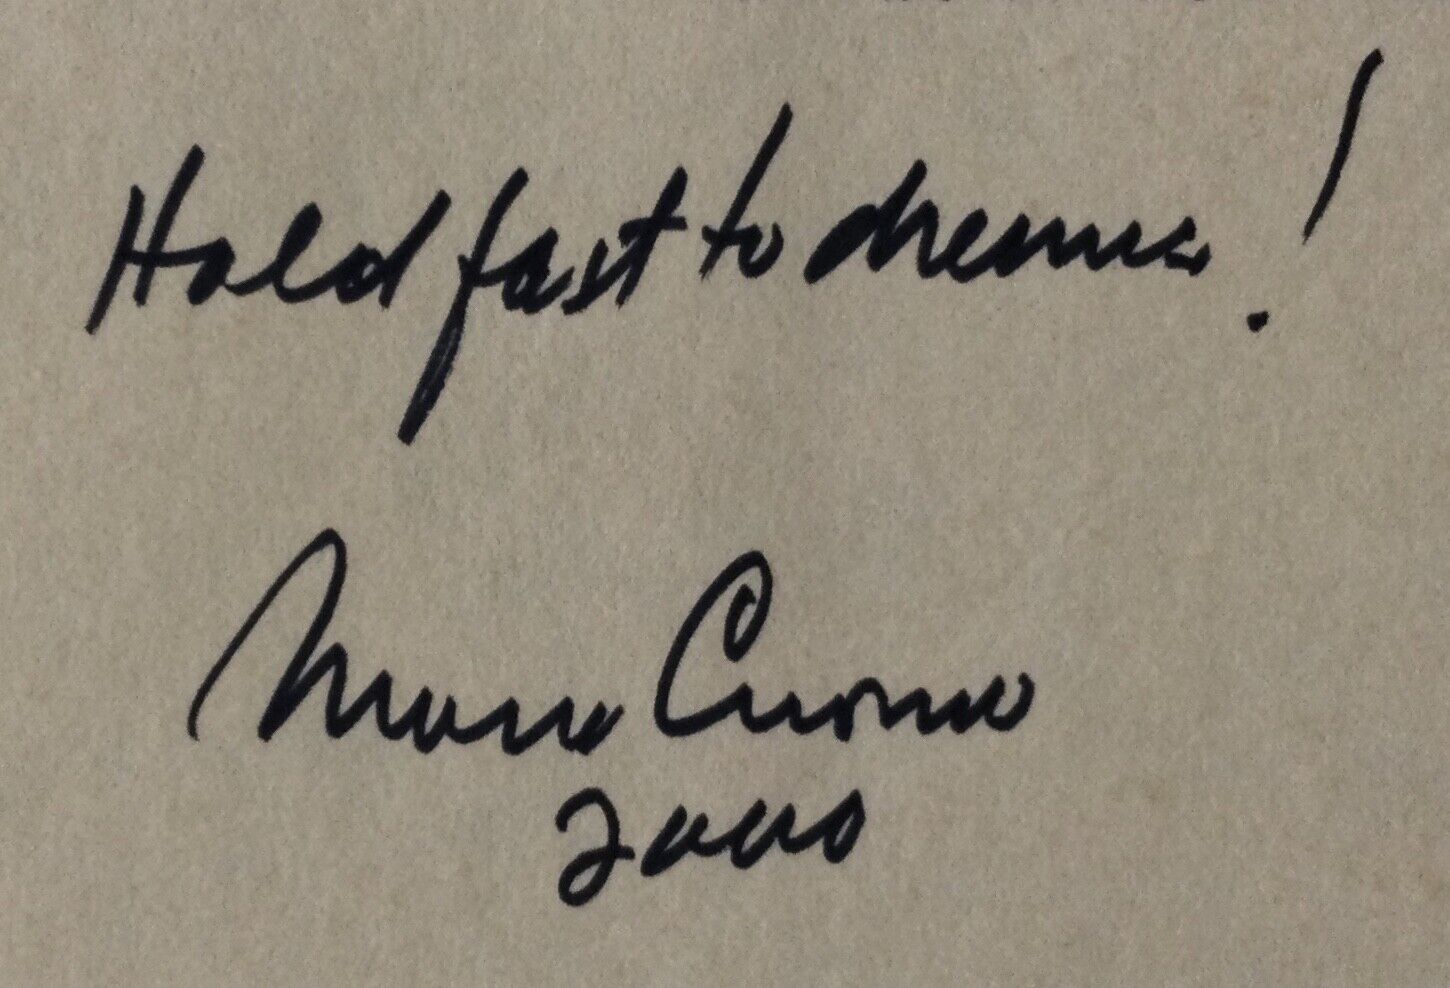 Hold fast to dreams!
Mario Cuomo
2000